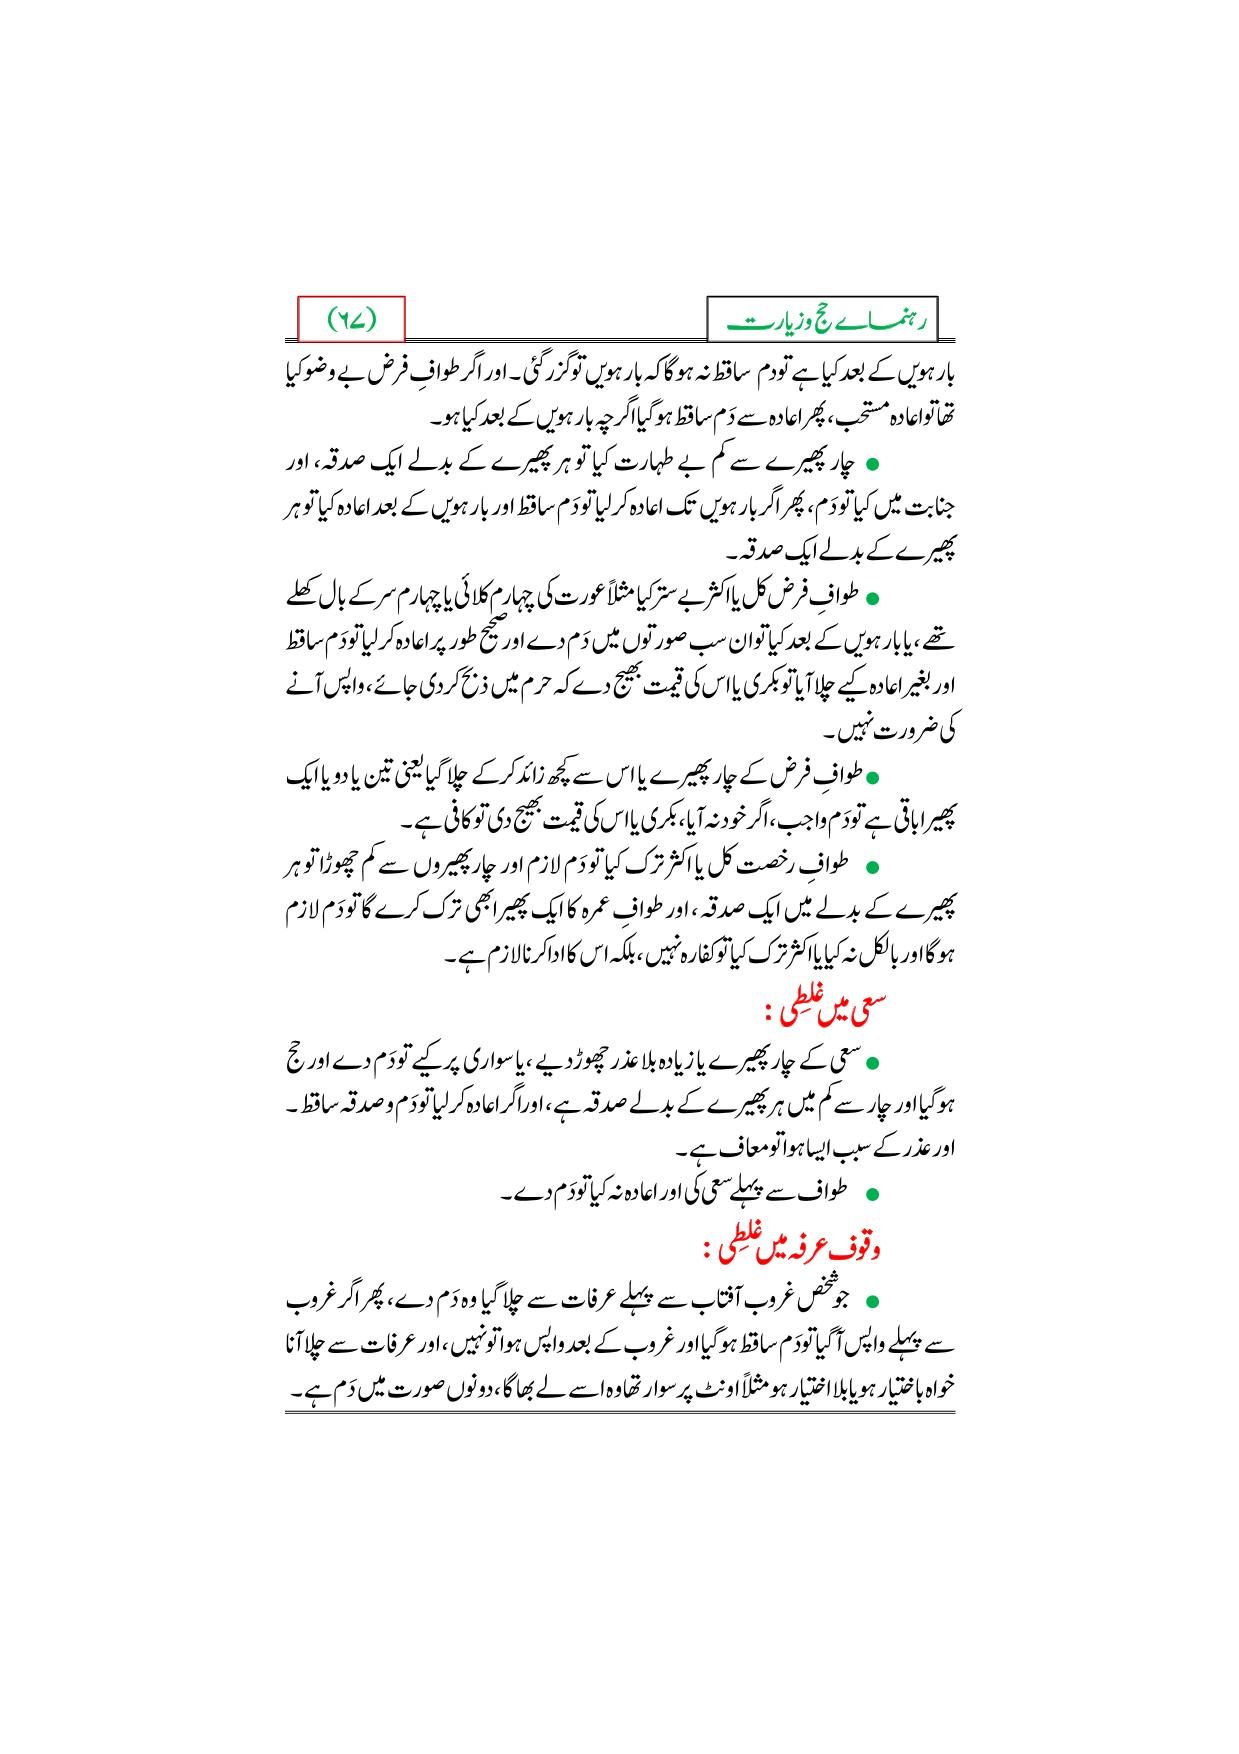 رہنماے حج و زیارت
(۶۷)
بارہویں کے بعد کیا ہے تو دم ساقط نہ ہوگا کہ بارہویں تو گزر گئی۔ اور اگر طوافِ فرض بے وضو کیا
تھا تو اعادہ مستحب، پھر اعادہ سے دَم ساقط ہوگیا اگرچہ بارہویں کے بعد کیا ہو۔
● چار پھیرے سے کم بے طہارت کیا تو ہر پھیرے کے بدلے ایک صدقہ، اور
جنابت میں کیا تو دَم، پھر اگر بارہویں تک اعادہ کرلیا تو دَم ساقط اور بارہویں کے بعد اعادہ کیا تو ہر
پھیرے کے بدلے ایک صدقہ۔
● طوافِ فرض کل یا اکثر بے ستر کیا مثلاً عورت کی چہارم کلائی یا چہارم سر کے بال کھلے
تھے، یا بارہویں کے بعد کیا تو ان سب صورتوں میں دَم دے اور صحیح طور پر اعادہ کرلیا تو دَم ساقط
اور بغیر اعادہ کیے چلا آیا تو بکری یا اس کی قیمت بھیج دے کہ حرم میں ذبح کردی جائے، واپس آنے
کی ضرورت نہیں۔
● طوافِ فرض کے چار پھیرے یا اس سے کچھ زائد کرکے چلا گیا یعنی تین یا دو یا ایک
پھیرا باقی ہے تو دَم واجب، اگر خود نہ آیا، بکری یا اس کی قیمت بھیج دی تو کافی ہے۔
● طوافِ رخصت کل یا اکثر ترک کیا تو دَم لازم اور چار پھیروں سے کم چھوڑا تو ہر
پھیرے کے بدلے میں ایک صدقہ، اور طوافِ عمرہ کا ایک پھیرا بھی ترک کرے گا تو دَم لازم
ہوگا اور بالکل نہ کیا یا اکثر ترک کیا تو کفارہ نہیں، بلکہ اس کا ادا کرنا لازم ہے۔
سعی میں غلطِی :
● سعی کے چار پھیرے یا زیادہ بلا عذر چھوڑ دیے، یا سواری پر کیے تو دَم دے اور حج
ہوگیا اور چار سے کم میں ہر پھیرے کے بدلے صدقہ ہے، اور اگر اعادہ کرلیا تو دَم و صدقہ ساقط۔
اور عذر کے سبب ایسا ہوا تو معاف ہے۔
● طواف سے پہلے سعی کی اور اعادہ نہ کیا تو دَم دے۔
وقوف عرفہ میں غلطِی :
● جو شخص غروب آفتاب سے پہلے عرفات سے چلا گیا وہ دَم دے، پھر اگر غروب
سے پہلے واپس آگیا تو دَم ساقط ہوگیا اور غروب کے بعد واپس ہوا تو نہیں، اور عرفات سے چلا آنا
خواہ باختیار ہو یا بلا اختیار ہو مثلاً اونٹ پر سوار تھا وہ اسے لے بھاگا، دونوں صورت میں دَم ہے۔